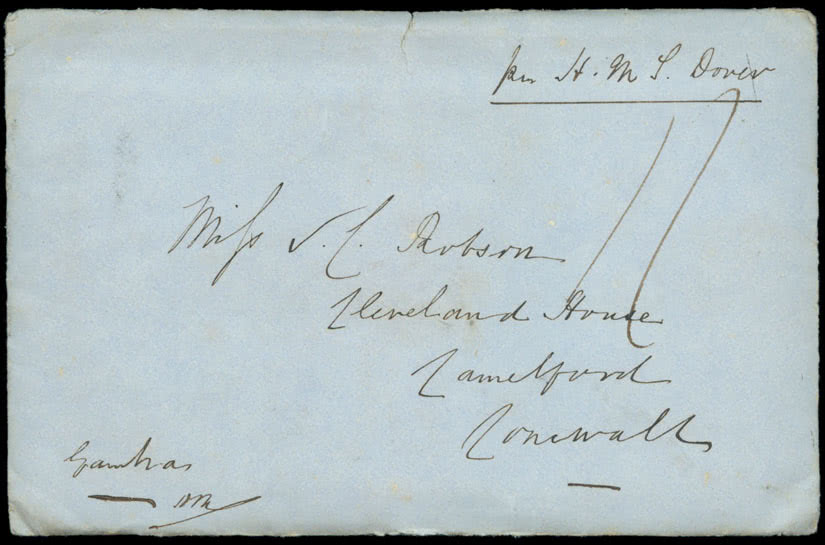 per H.M.S. Dover
Miss S. C. Robson
Cleveland House
Camelford
Cornwall
Gambia